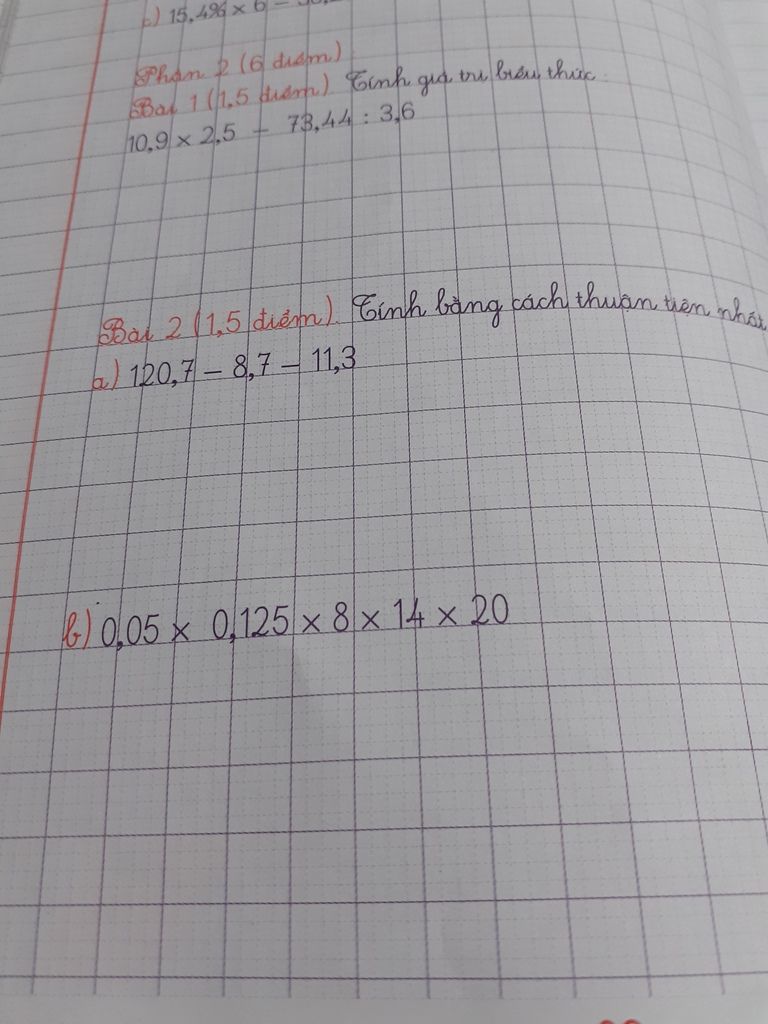 c) 15,496 × 6 =
Phần 2 (6 điểm)
Bài 1 (1,5 điểm) Tính giá trị biểu thức.
10,9 × 2,5 - 73,44 : 3,6
Bài 2 (1,5 điểm). Tính bằng cách thuận tiện nhất
a) 120,7 - 8,7 - 11,3
b) 0,05 × 0,125 × 8 × 14 × 20